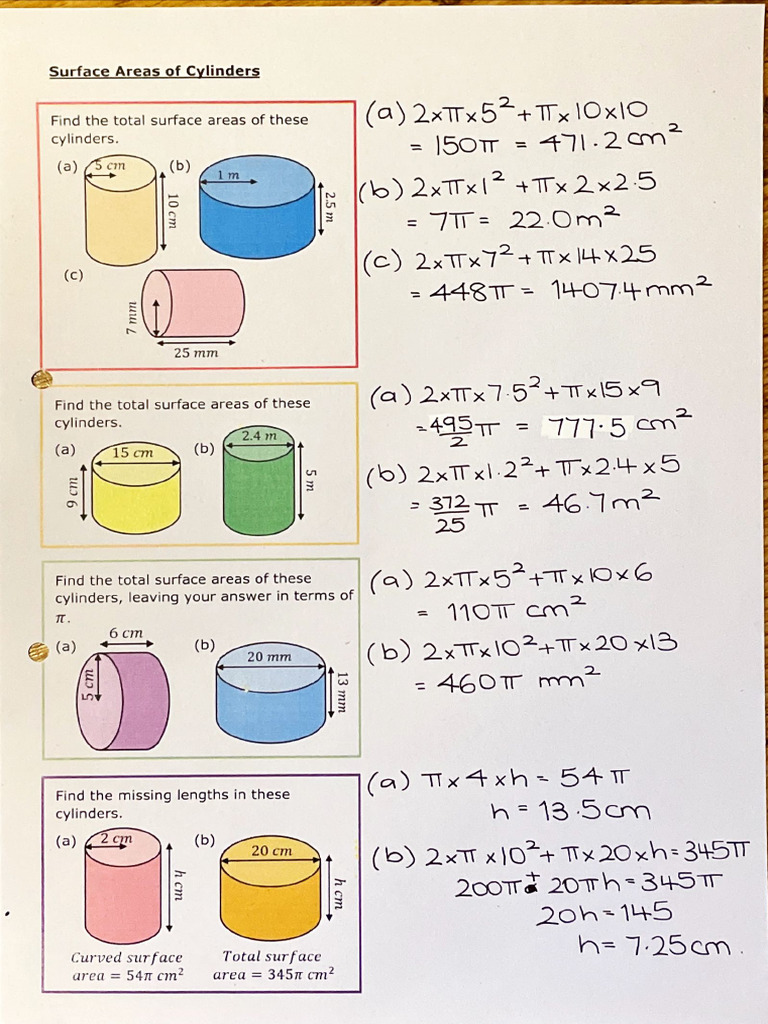 Surface Areas of Cylinders
Find the total surface areas of these
cylinders.
(a) 5 cm 10 cm (b) 1 m 2.5 m
(c) 7 mm 25 mm
(a) 2×π×5² + π×10×10
= 150π = 471.2 cm²
(b) 2×π×1² + π×2×2.5
= 7π = 22.0 m²
(c) 2×π×7² + π×14×25
= 448π = 1407.4 mm²
Find the total surface areas of these
cylinders.
(a) 15 cm 9 cm (b) 2.4 m 5 m
(a) 2×π×7.5² + π×15×9
= 495/2 π = 777.5 cm²
(b) 2×π×1.2² + π×2.4×5
= 372/25 π = 46.7 m²
Find the total surface areas of these
cylinders, leaving your answer in terms of
π.
(a) 6 cm 5 cm (b) 20 mm 13 mm
(a) 2×π×5² + π×10×6
= 110π cm²
(b) 2×π×10² + π×20×13
= 460π mm²
Find the missing lengths in these
cylinders.
(a) 2 cm h cm (b) 20 cm h cm
Curved surface
area = 54π cm²
Total surface
area = 345π cm²
(a) π×4×h = 54π
h = 13.5cm
(b) 2×π×10² + π×20×h = 345π
200π + 20πh = 345π
20h = 145
h = 7.25cm.